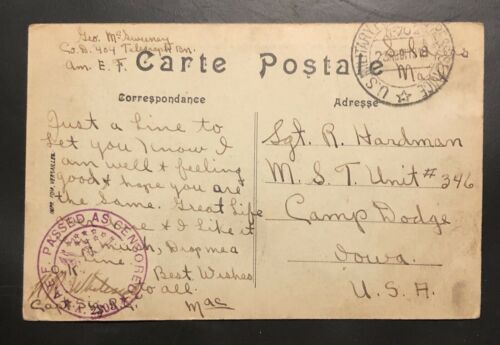 Geo. McSweeney
Co. D. 404 Telegraph Bn.
Am. E. F.
Soldiers
Mail
Carte Postale
Correspondance
Adresse
Just a Line to
Let you know I
am well & feeling
good & hope you are
the same. Great Life
here & I like it
much, Drop me a
Line.
Best Wishes
to all.
Mac
O.K.
A.E.F. PASSED AS CENSORED
Sgt. R. Hardman
M. S. T. Unit # 346
Camp Dodge
Iowa.
U. S. A.